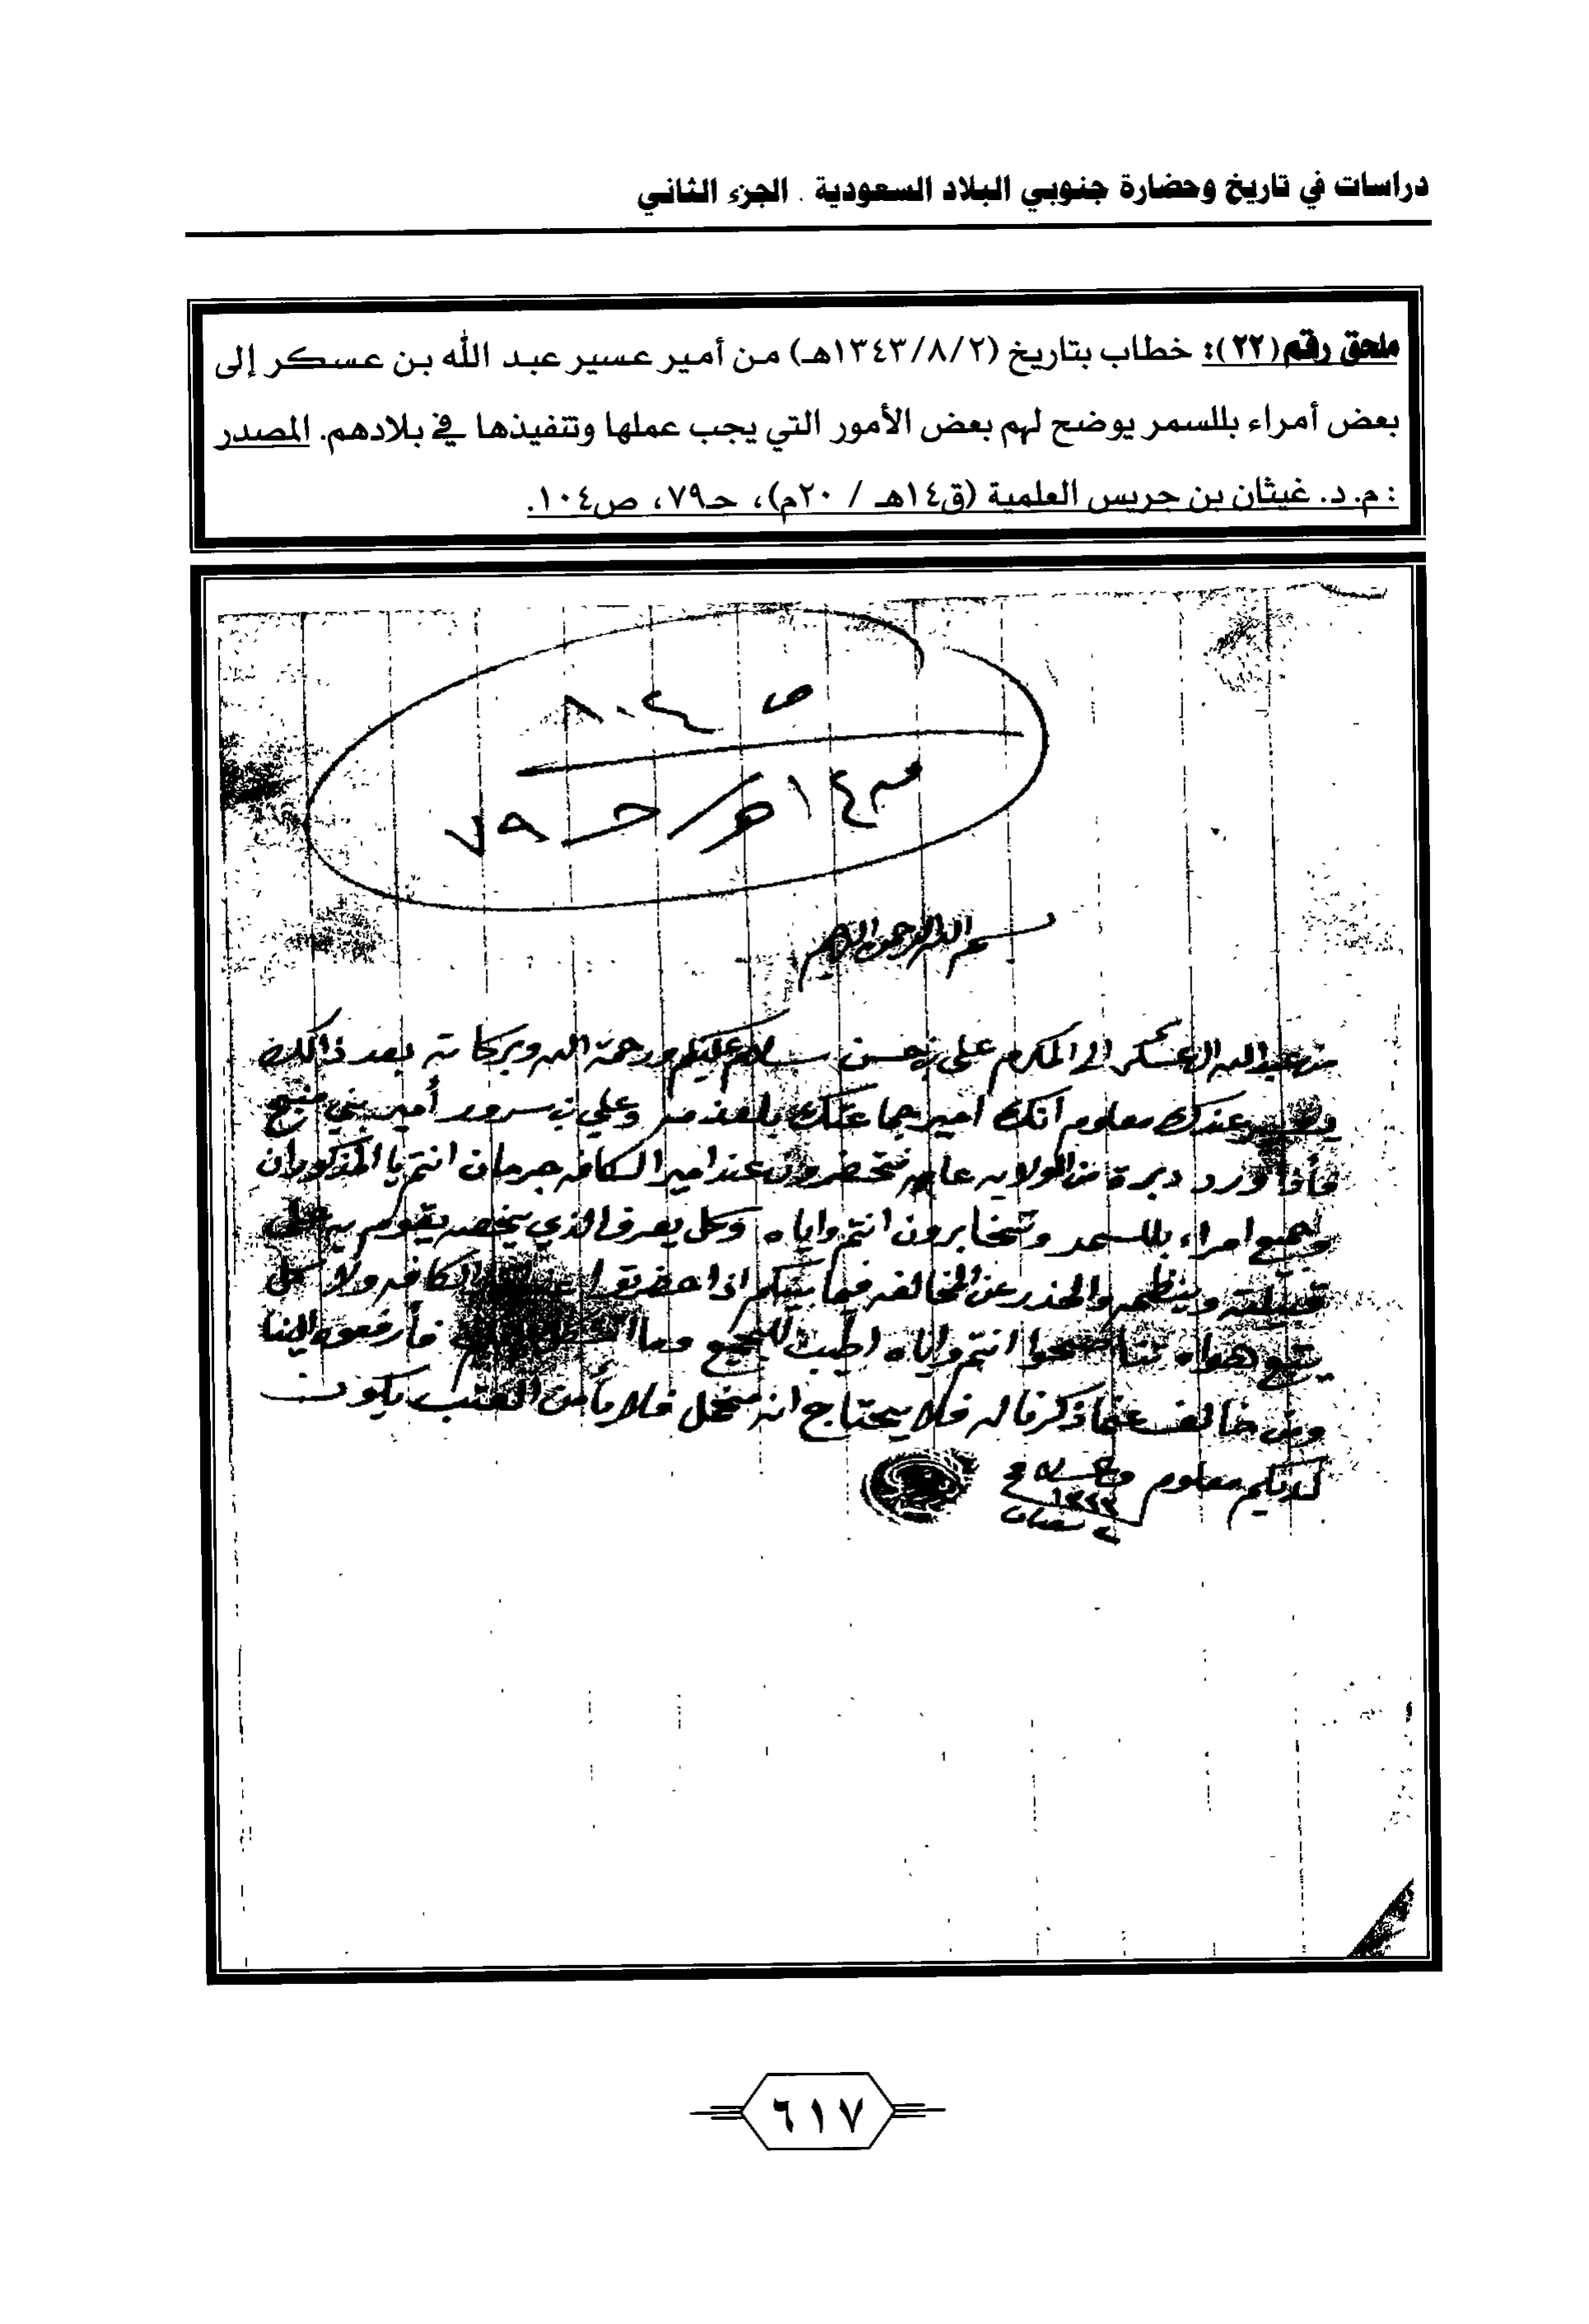 دراسات في تاريخ وحضارة جنوبي البلاد السعودية . الجزء الثاني
ملحق رقم (٢٢): خطاب بتاريخ (١٣٤٣/٨/٢هـ) من أمير عسير عبد الله بن عسكر إلى
بعض أمراء بللسمر يوضح لهم بعض الأمور التي يجب عملها وتنفيذها في بلادهم. المصدر
: م. د. غيثان بن جريس العلمية (ق١٤هـ / ٢٠م)، حـ٧٩، ص١٠٤.
ص
١٤ هـ / حـ ٧٩
بسم الله الرحمن الرحيم
من عبدالله ال عسكر الى المكرم علي بن حسن سلام عليكم ورحمة الله وبركاته بعد ذالك
عندك معلوم انك امير جماعتك وعلي بن سرور أمير بني منبج
فأذا ورد ديرة من الولايه تحضرون عند امير الكافه جرمان انتم يا المذكوران
وجميع امراء بللسمر وتتخابرون انتم واياه وكل يعرف الذي يخصه يقوم به على
قبيلته وينظمه والحذر عن المخالفه فيما بينكم اذا حضرتوا الكافه ولا كل
يتبع هواه تناصحوا انتم واياه اطيب للجميع وما فأرفعوه الينا
ومن خالف عما ذكرنا له فلا يحتاج انه فلا يأمن العتب يكون
لديكم معلوم
١٣٤٣
٢ شعبان
٦١٧